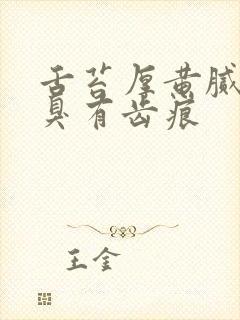 舌苔厚黄腻
臭有齿痕
王金